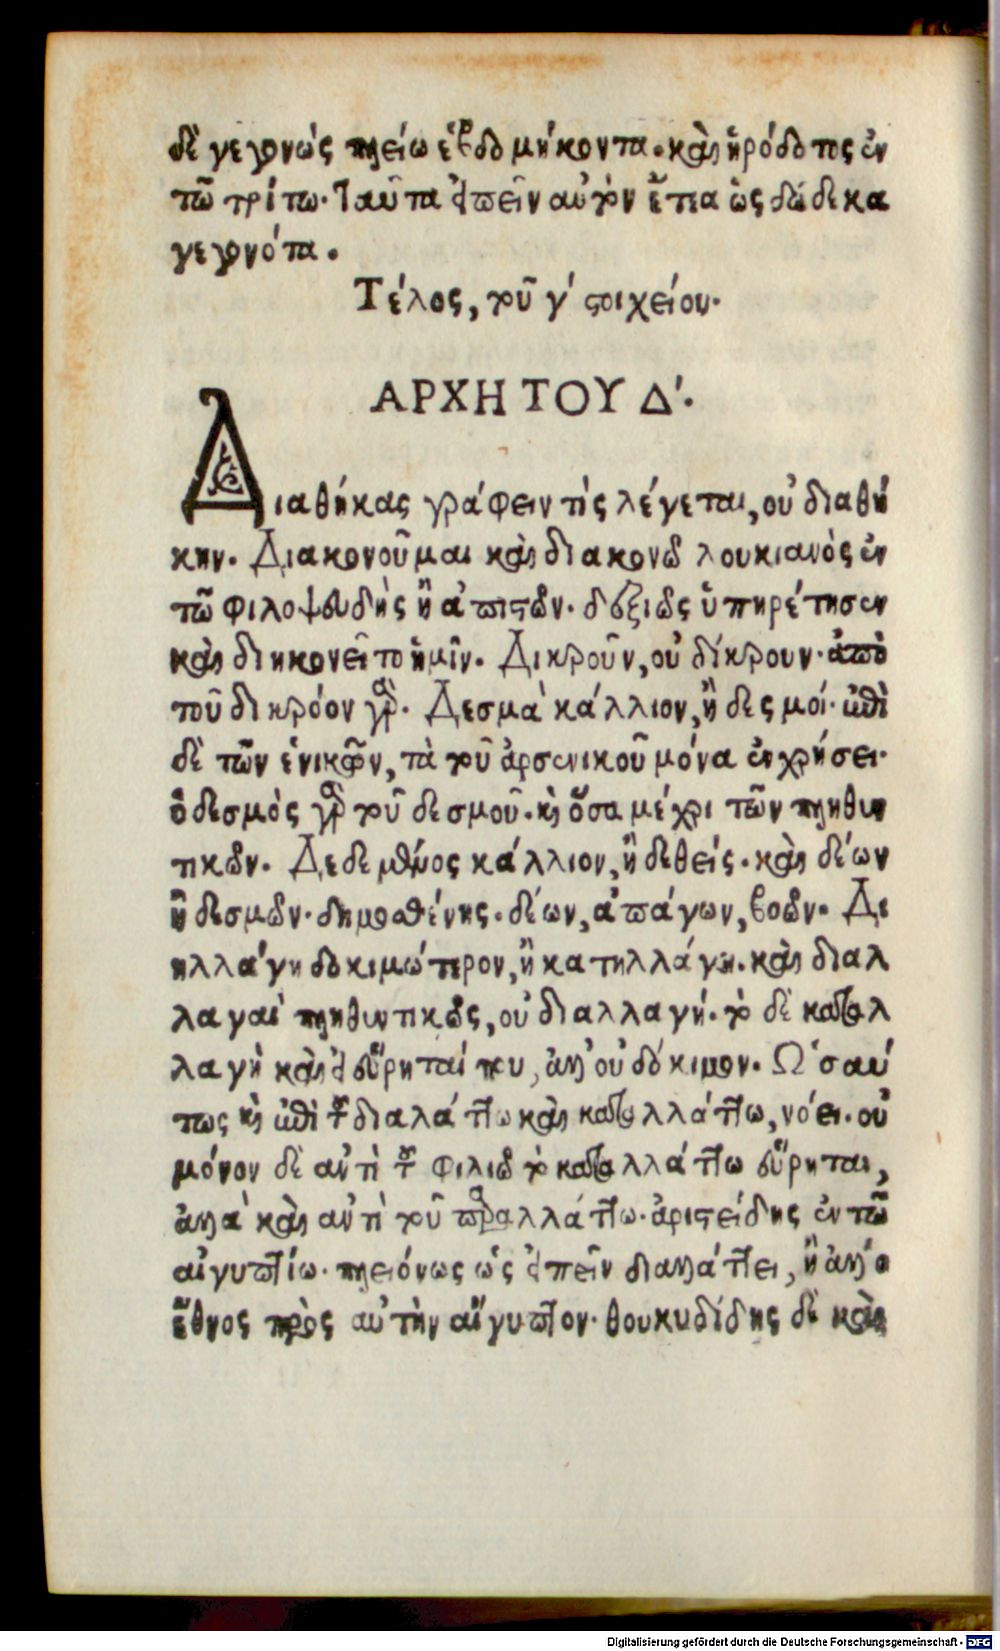 δὲ γεγονὼς πλείω ἑβδομήκοντα. καὶ ἡρόδοτος ἐν
τῶ τρίτω. Ταῦτα εἰπεῖν αὐτὸν ἔτια ὡς δώδεκα
γεγονότα.
Τέλος, τοῦ γ´ στοιχείου.
ΑΡΧΗ ΤΟΥ Δ´.
Διαθήκας γράφειν τὶς λέγεται, οὐ διαθή
κην. Διακονοῦμαι καὶ διακονῶ λουκιανὸς ἐν
τῶ φιλοψευδὴς ἢ ἀπιστῶν. δεξιῶς ὑπηρέτησεν
καὶ διηκονεῖτο ἡμῖν. Δικροῦν, οὐ δίκρουν. ἀπὸ
τοῦ δικρόον γὰρ. Δεσμὰ κάλλιον, ἢ δεσμοί. ἐπὶ
δὲ τῶν ἑνικῶν, τὰ τοῦ ἀρσενικοῦ μόνα ἐν χρήσει.
ὁ δεσμὸς γὰρ τοῦ δεσμοῦ. καὶ ὅσα μέχρι τῶν πληθυν
τικῶν. Δεδεμένος κάλλιον, ἢ δεθείς. καὶ δέων
ἢ δεσμῶν. δημοσθένης. δέων, ἀπάγων, βοῶν. Δι
ηλλάγη δοκιμώτερον, ἢ κατηλλάγη. καὶ διαλ
λαγαὶ πληθυντικῶς, οὐ διαλλαγή. τὸ δὲ καταλ
λαγὴ καὶ εἰ εὕρηταί που, ἀλλ' οὐ δόκιμον. Ὡσαύ
τως καὶ ἐπὶ τοῦ διαλάττω καὶ καταλλάττω, νόει. οὐ
μόνον δὲ αντὶ τοῦ φιλιῶ τὸ καταλλάττω εὕρηται,
ἀλλὰ καὶ αντὶ τοῦ παραλλάττω. ἀριστείδης ἐν τῶ
αἰγυπτίω. πλειόνως ὡς εἰπεῖν διαλλάττει, ἢ ἀλλ' ο
ἔθνος πρὸς αυτὴν αἴγυπτον. θουκυδίδης δὲ καὶ
Digitalisierung gefördert durch die Deutsche Forschungsgemeinschaft - DFG